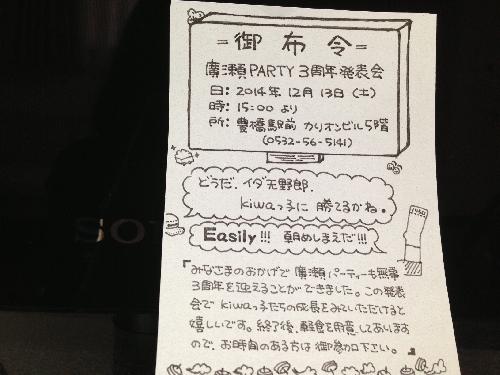 = 御布令 =
廣瀬PARTY 3周年発表会
日: 2014年 12月 13日 (土)
時: 15:00 より
所: 豊橋駅前 カリオンビル5階
(0532-56-5141)
どうだ、イダ天野郎。
kiwaっ子に 勝てるかね。
Easily!!! 朝めしまえだ!!!
「みなさまのおかげで 廣瀬パーティーも無事
3周年を迎えることができました。この発表
会で kiwaっ子たちの成長をみていただけると
嬉しいです。終了後、軽食を用意してあります
ので、お時間のある方は 御参加下さい。」
SO